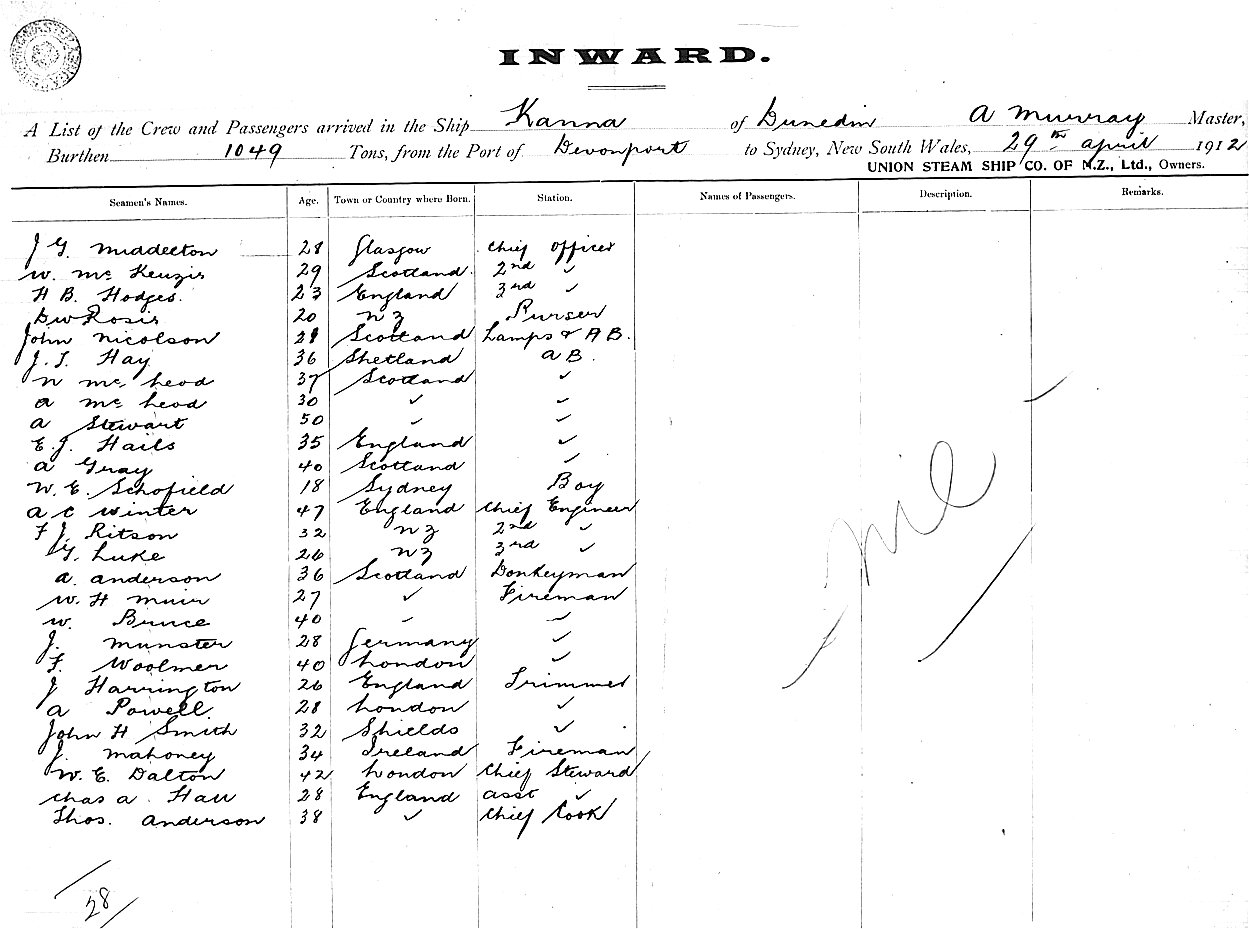 INWARD.
A List of the Crew and Passengers arrived in the Ship Kanna of Dunedin A Murray Master,
Burthen 1049 Tons, from the Port of Devonport to Sydney, New South Wales, 29th April 1912
UNION STEAM SHIP CO. OF N.Z., Ltd., Owners.
Seamen's Names. Age. Town or Country where Born. Station. Names of Passengers. Description. Remarks.
J G. Middleton 28 Glasgow Chief Officer
W. Mc Kenzie 29 Scotland 2nd ✓
H B. Hodges. 23 England 3rd ✓
20 N Z Purser
John Nicolson Scotland Lamps & A B.
J. T. Hay 36 Shetland A B.
N Mc Leod 37 Scotland ✓
A Mc Leod 30 ✓ ✓
A Stewart 50 ✓ ✓
E. J. Hails 35 England ✓
A Gray 40 Scotland ✓
W. E. Schofield 18 Sydney Boy
A C Winter 47 England Chief Engineer
F J. Ritson 32 N Z 2nd ✓
G. Luke 26 N Z 3rd ✓
A. Anderson 36 Scotland Donkeyman
W. H Muir 27 ✓ Fireman
W. Bruce 40 ✓ ✓
J. Munster 28 Germany ✓
F. Woolmer 40 London ✓
J Harrington 26 England Trimmer
A Powell. 28 London ✓
John H Smith 32 Shields ✓
J. Mahoney 34 Ireland Fireman
W. E. Dalton 42 London Chief Steward
Chas A. Hall 28 England Asst ✓
Thos. Anderson 38 ✓ Chief Cook
Nil
28